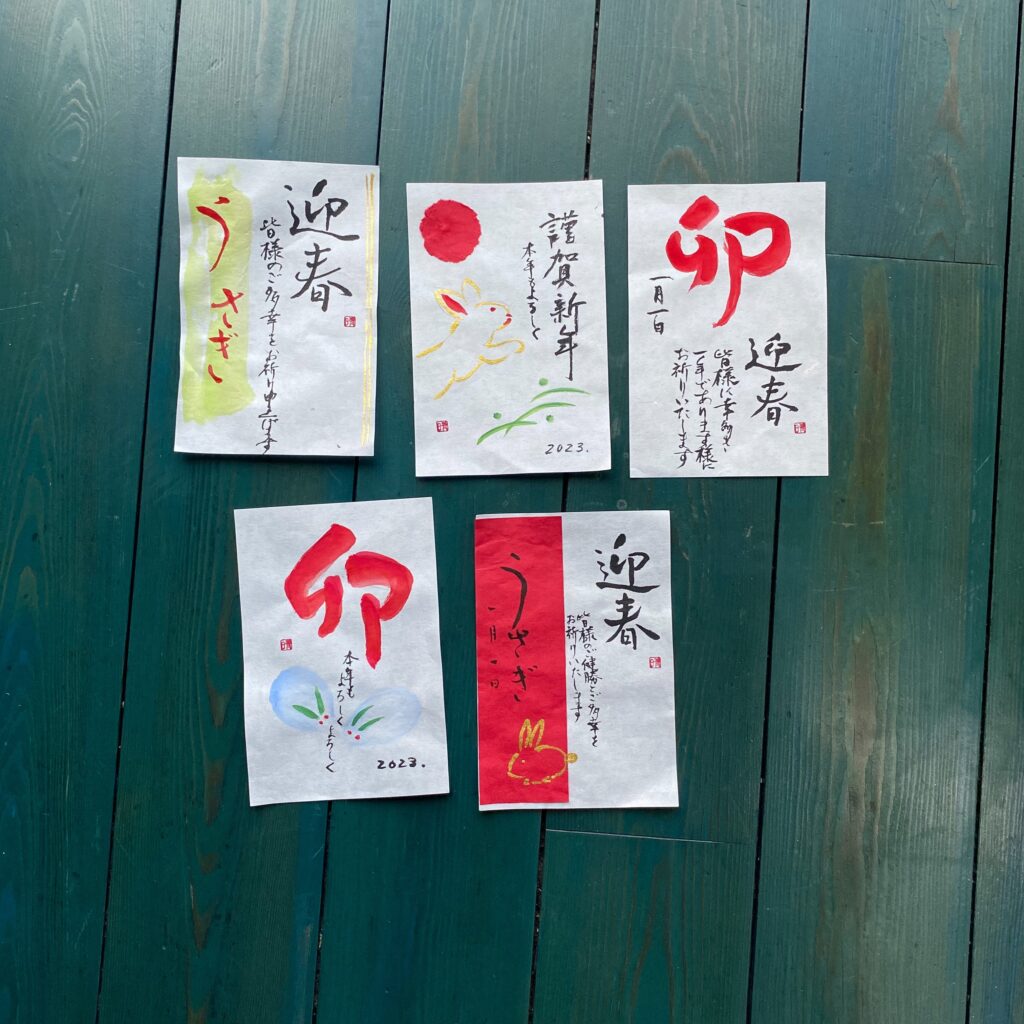 迎春
皆様のご多幸をお祈り申上げます
うさぎ
謹賀新年
本年もよろしく
2023.
卯
一月一日
迎春
皆様に幸多き
一年であります様に
お祈りいたします
卯
本年も
よろしく
よろしく
2023.
迎春
皆様のご健勝とご多幸を
お祈りいたします
うさぎ
一月一日